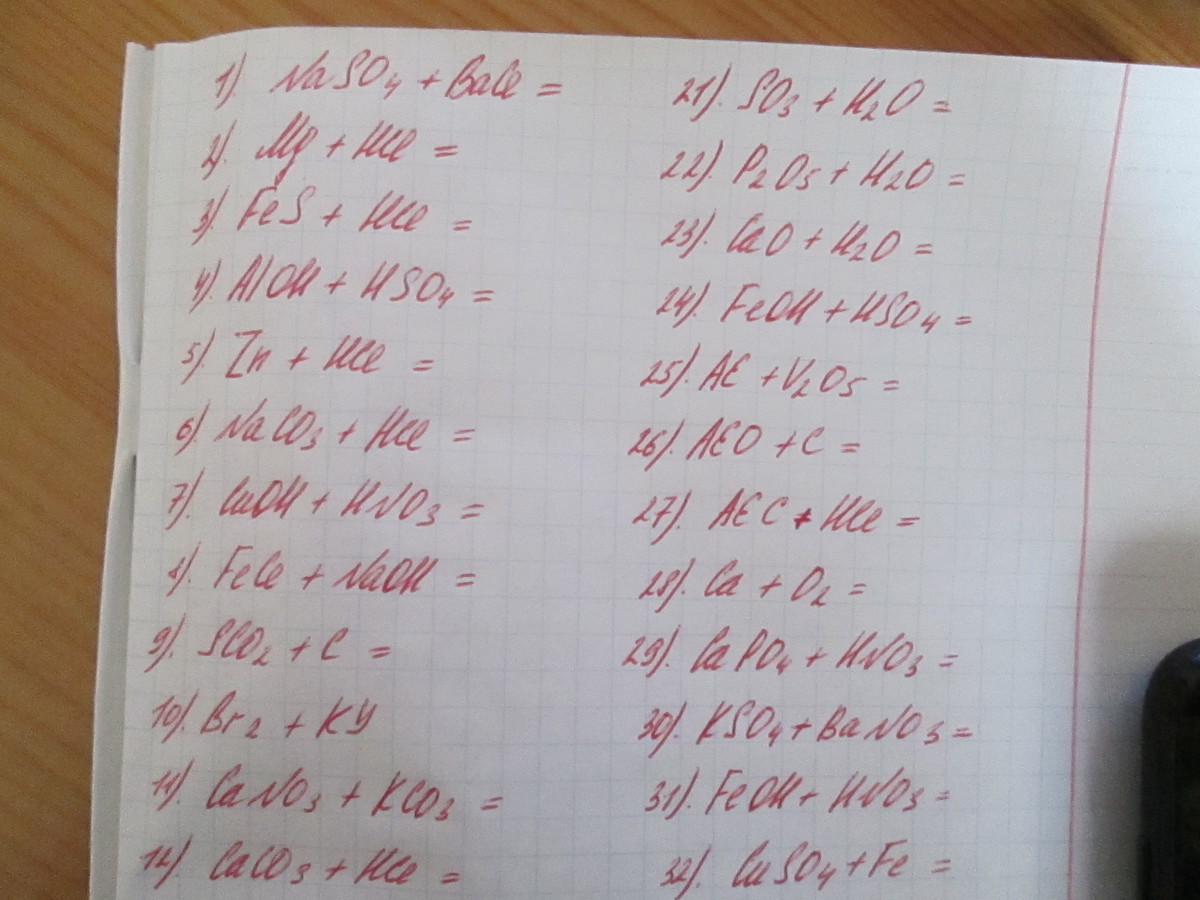 1). NaSO4 + BaCl =
2). Mg + HCl =
3). FeS + HCl =
4). AlOH + HSO4 =
5). Zn + HCl =
6). NaCO3 + HCl =
7). CuOH + HNO3 =
8). FeCl + NaOH =
9). SCO2 + C =
10). Br2 + KY
11). CaNO3 + KCO3 =
12). CaCO3 + HCl =
21). SO3 + H2O =
22). P2O5 + H2O =
23). CaO + H2O =
24). FeOH + HSO4 =
25). Al + V2O5 =
26). AlO + C =
27). AlC + HCl =
28). Ca + O2 =
29). CaPO4 + HNO3 =
30). KSO4 + BaNO3 =
31). FeOH + HNO3 =
32). CuSO4 + Fe =